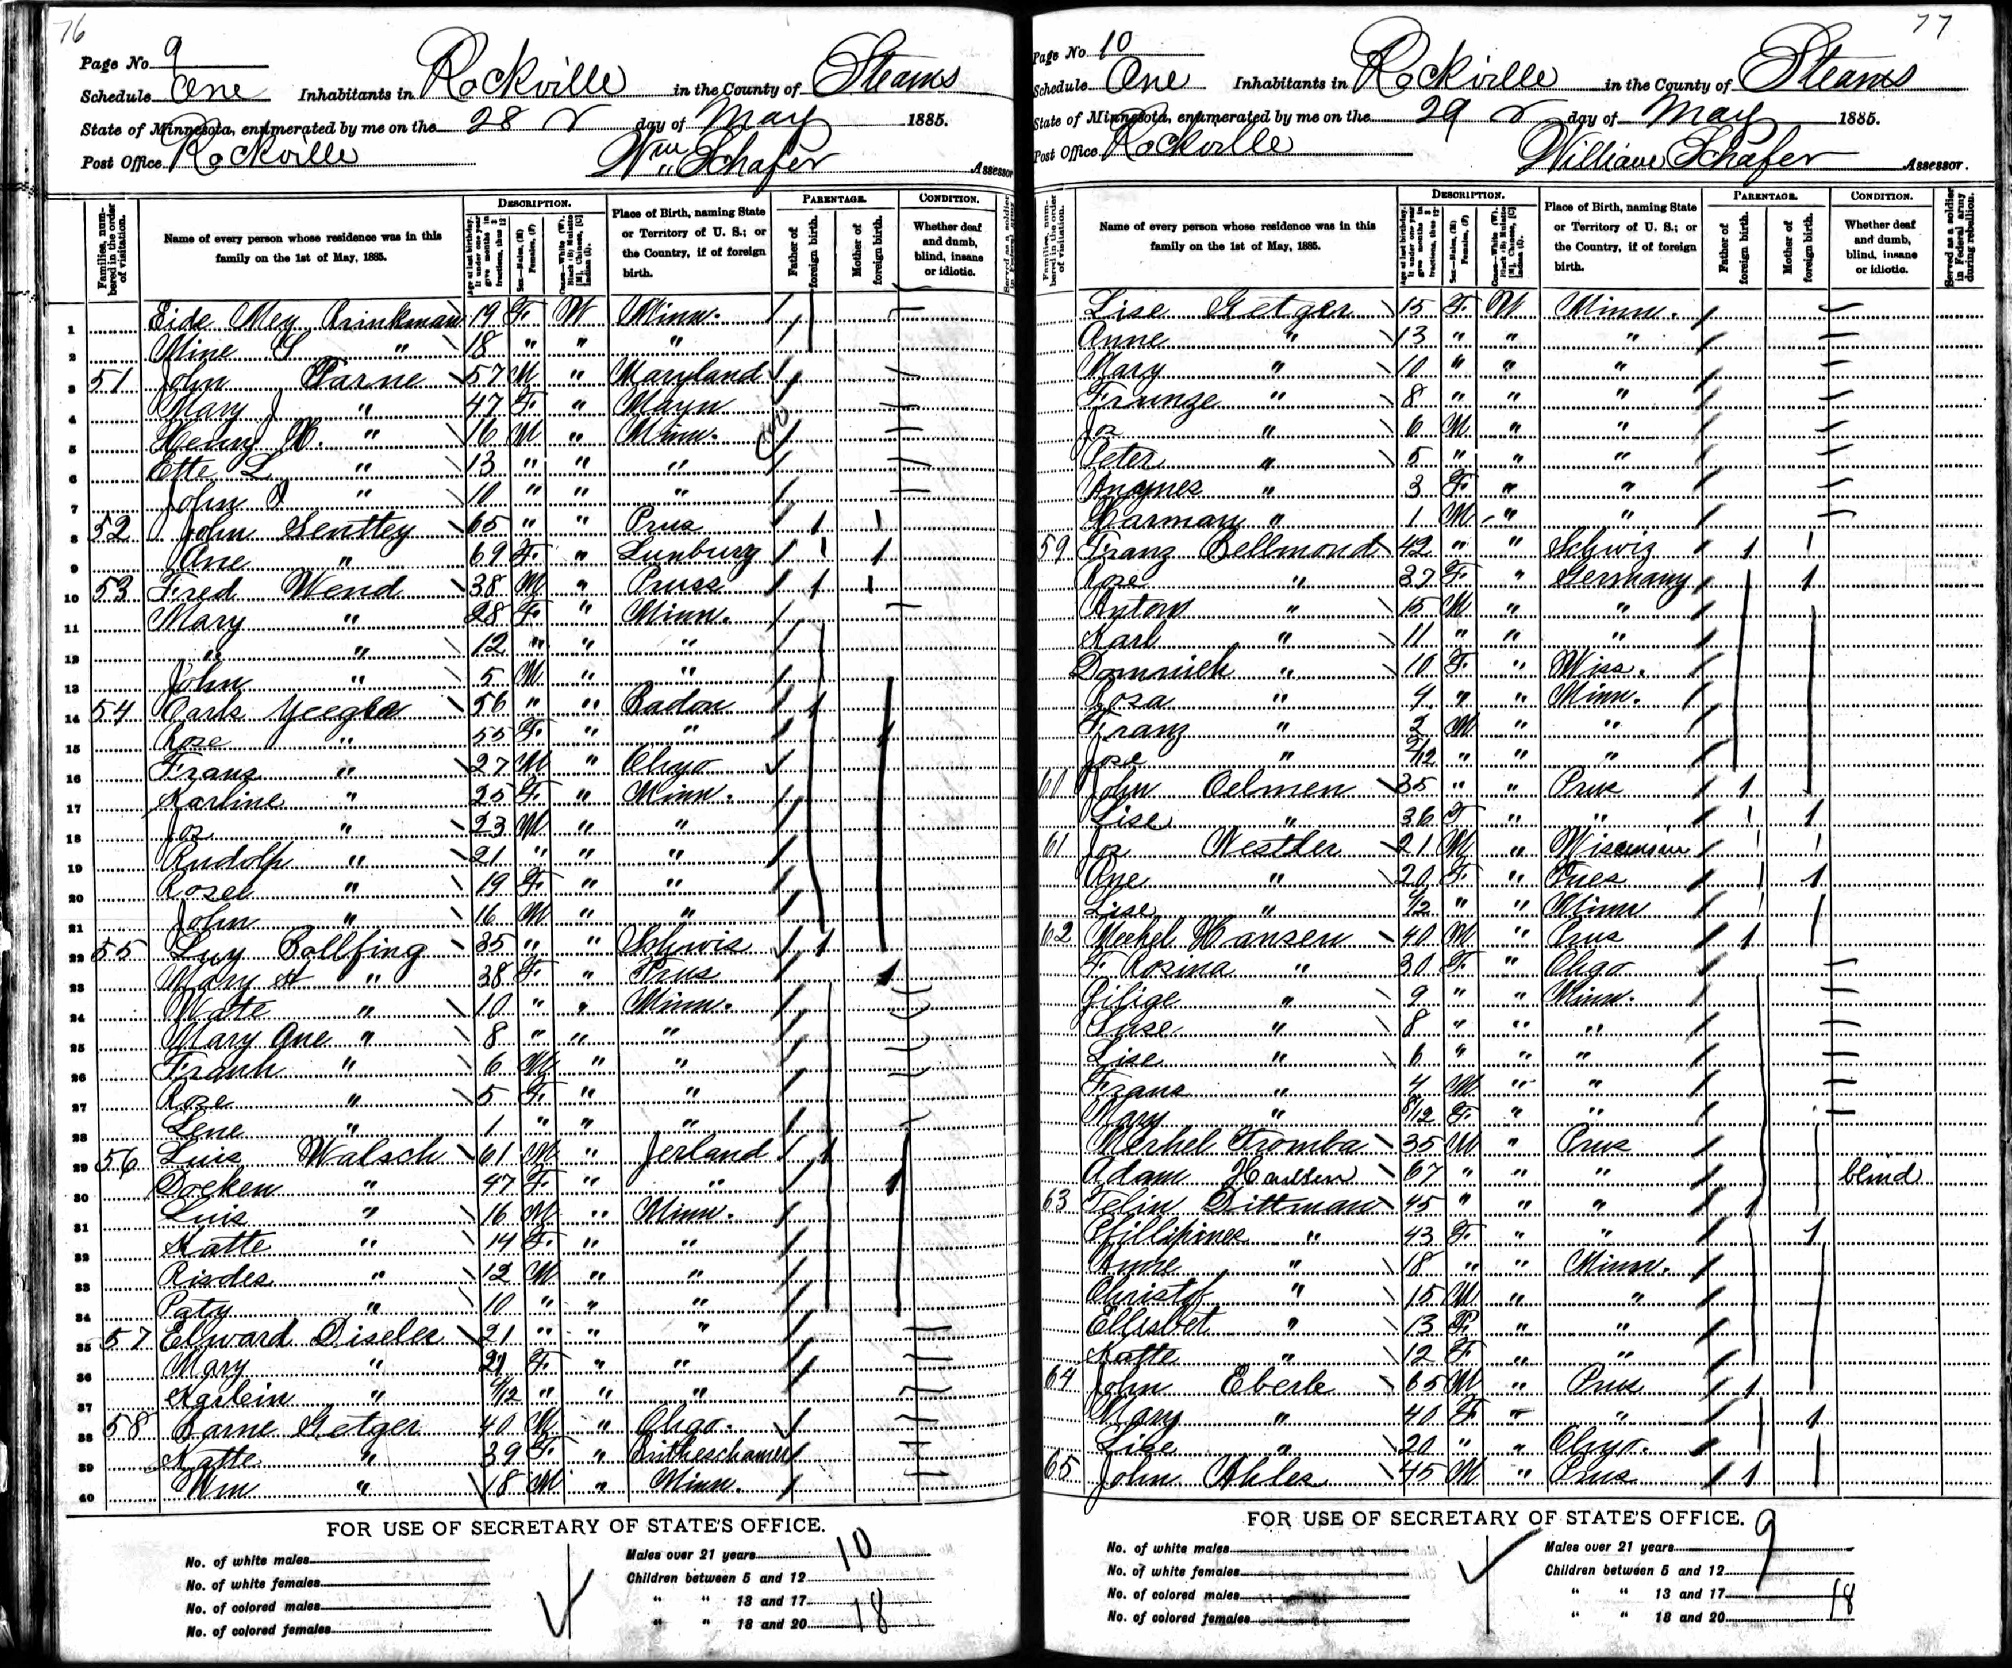 76
Page No. 9
Schedule One Inhabitants in Rockville in the County of Stearns
State of Minnesota, enumerated by me on the 28 day of May 1885.
Post Office Rockville Wm Schafer Assessor
Families, numbered in the order of visitation.
Name of every person whose residence was in this family on the 1st of May, 1885.
DESCRIPTION.
Place of Birth, naming State or Territory of U. S.; or the Country, if of foreign birth.
PARENTAGE.
Father of foreign birth.
Mother of foreign birth.
CONDITION.
Whether deaf and dumb, blind, insane or idiotic.
1 Eide Mey Brinkman 19 F. W Minn.
2 Mine S " 18 " " "
3 51 John Parne 57 M " Maryland
4 Mary J " 47 F. " Mayn
5 Henry W. " 16 M " Minn.
6 Ette L " 13 " " "
7 John J " 10 " " "
8 52 John Sentley 65 " " Prus
9 Ane " 69 F. " Lunburg
10 53 Fred Wend 38 M " Pruss
11 Mary " 28 F. " Minn.
12 " " 12 " " "
13 John " 5 M " "
14 54 Carls Yeegle 56 " " Badon
15 Rose " 55 F. " "
16 Frans " 27 M " Ohyo
17 Karline " 25 F. " Minn.
18 Jos " 23 M " "
19 Rudolph " 21 " " "
20 Rosel " 19 F. " "
21 John " 16 M " "
22 55 Luy Bollfing 35 " " Schwis
23 Mary A " 38 F. " Prus
24 Mate " 10 " " Minn.
25 Mary Ane " 8 " " "
26 Frank " 6 M " "
27 Rose " 5 F. " "
28 Lene " 1 " " "
29 56 Luis Walsch 61 M " Jerland
30 Doeken " 47 F. " "
31 Luis " 16 M " Minn.
32 Katte " 14 F. " "
33 Risdes " 12 M " "
34 Paty " 10 " " "
35 57 Edward Diseler 21 " " "
36 Mary " 21 F. " "
37 Karlein " 9/12 " " "
38 58 Barne Getger 40 M " Ohgo.
39 Katte " 39 F. "
40 Wm " 18 M " Minn.
FOR USE OF SECRETARY OF STATE'S OFFICE.
No. of white males
No. of white females
No. of colored males
No. of colored females
Males over 21 years 10
Children between 5 and 12
" " 13 and 17
" " 18 and 20 18
77
Page No 10
Schedule One Inhabitants in Rockville in the County of Stearns
State of Minnesota, enumerated by me on the 29 day of May 1885.
Post Office Rockville William Schafer Assessor.
Families, numbered in the order of visitation.
Name of every person whose residence was in this family on the 1st of May, 1885.
DESCRIPTION.
Place of Birth, naming State or Territory of U. S.; or the Country, if of foreign birth.
PARENTAGE.
Father of foreign birth.
Mother of foreign birth.
CONDITION.
Whether deaf and dumb, blind, insane or idiotic.
Served as a soldier in Federal army during rebellion.
Lise Getger 15 F. W Minn.
Anne " 13 " " "
Mary " 10 " " "
Frunze " 8 " " "
Jos " 6 M " "
Peter " 5 " " "
Angnes " 3 F. " "
Harman " 1 M " "
59 Franz Bellmond 42 " " Schwiz
Rose " 37 F. " Germany
Anton " 15 M " "
Karl " 11 " " "
Domnick " 10 F. " Wiss.
Rosa " 4 " " Minn.
Franz " 2 M " "
Jose " 2/12 " " "
60 John Oelmen 35 " " Prus
Lise " 36 F " "
61 Jos Westler 21 M " Wisconsin
Ane " 20 F " Prus
Lise " " " Minn
62 Mechel Hansen 40 M " Prus
F. Rosina " 30 F. " Ohgo
Gilige " 9 " " Minn.
Suse " 8 " " "
Lise " 6 " " "
Frans " 4 M " "
Mary " 8/12 F. " "
Merhel Tromba 35 M " Prus
Adam 67 " " " blind
63 Telin Dittman 45 " " "
Phillipines " 43 F. " "
Anne " 18 " " Minn.
Christof " 15 M " "
Ellisbet " 13 F. " "
Katte " 12 F " "
64 John Eberle 65 M " Prus
Mary " 40 F. " "
Lise " 20 " " Ohyo.
65 John Ahles 45 M " Prus
FOR USE OF SECRETARY OF STATE'S OFFICE.
No. of white males
No. of white females
No. of colored males
No. of colored females
Males over 21 years 9
Children between 5 and 12
" " 13 and 17
" " 18 and 20 18